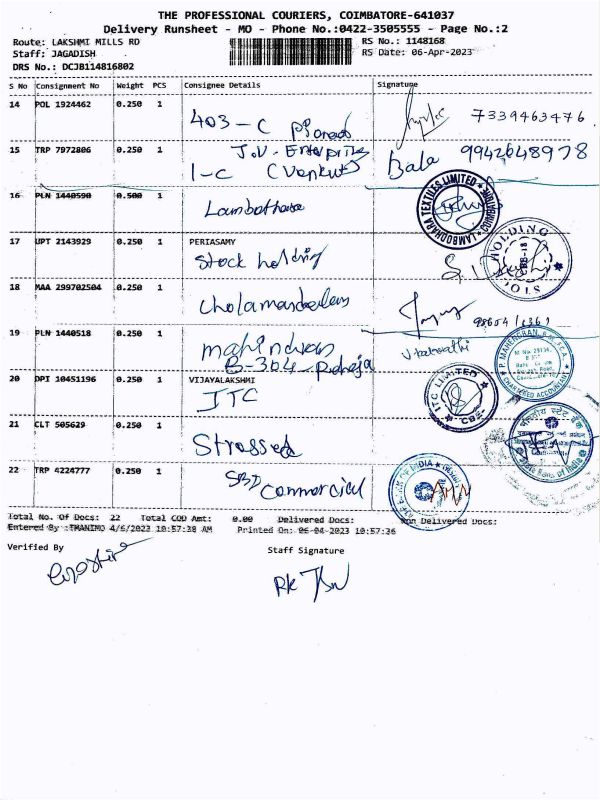 THE PROFESSIONAL COURIERS, COIMBATORE-641037
Delivery Runsheet - MO - Phone No.:0422-3505555 - Page No.:2
Route: LAKSHMI MILLS RD RS No.: 1148168
Staff: JAGADISH RS Date: 06-Apr-2023
DRS No.: DCJB114816802
S No Consignment No Weight PCS Consignee Details Signature
14 POL 1924462 0.250 1
403-C 7339463476
15 TRP 7972806 0.250 1
J.V. Enterprise
1-C (Venkut) Bala 9942648978
16 PLN 1440590 0.500 1
LAMBODHARA TEXTILES LIMITED
17 UPT 2143929 0.250 1 PERIASAMY
Stock holding
HOLDING
CBE-18
18 MAA 299702504 0.250 1
Cholamandalam
19 PLN 1440518 0.250 1
B-304 - Raheja
P. MAHENDRAN
CHARTERED ACCOUNTANT
20 DPI 10451196 0.250 1 VIJAYALAKSHMI
ITC
ITC LIMITED
CBE
21 CLT 505629 0.250 1
Stressed
भारतीय स्टेट बैंक
State Bank of India
22 TRP 4224777 0.250 1
SBI Commercial
BANK OF INDIA
Total No. Of Docs: 22 Total COD Amt: 0.00 Delivered Docs: Non Delivered Docs:
Entered By :TMANIMO 4/6/2023 10:57:38 AM Printed On: 06-04-2023 10:57:36
Verified By
Staff Signature